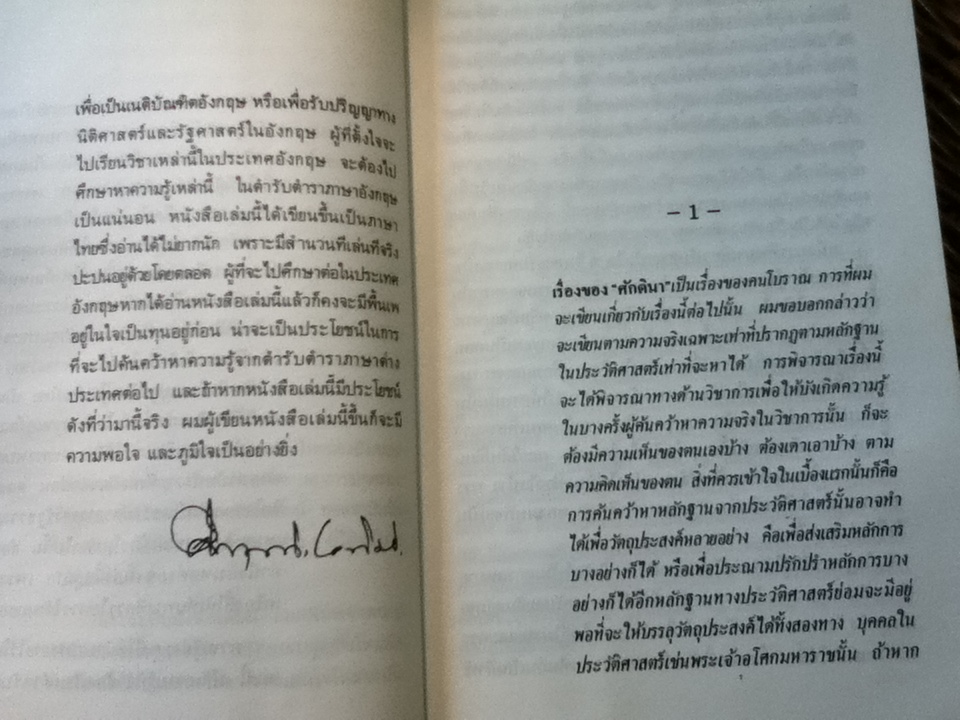 เพื่อเป็นเนติบัณฑิตอังกฤษ หรือเพื่อรับปริญญาทาง
นิติศาสตร์และรัฐศาสตร์ในอังกฤษ ผู้ที่ตั้งใจจะ
ไปเรียนวิชาเหล่านี้ในประเทศอังกฤษ จะต้องไป
ศึกษาหาความรู้เหล่านี้ ในตำรับตำราภาษาอังกฤษ
เป็นแน่นอน หนังสือเล่มนี้ได้เขียนขึ้นเป็นภาษา
ไทยซึ่งอ่านได้ไม่ยากนัก เพราะมีสำนวนทีเล่นทีจริง
ปะปนอยู่ด้วยโดยตลอด ผู้ที่จะไปศึกษาต่อในประเทศ
อังกฤษหากได้อ่านหนังสือเล่มนี้แล้วก็คงจะมีพื้นเพ
อยู่ในใจเป็นทุนอยู่ก่อน น่าจะเป็นประโยชน์ในการ
ที่จะไปค้นคว้าหาความรู้จากตำรับตำราภาษาต่าง
ประเทศต่อไป และถ้าหากหนังสือเล่มนี้มีประโยชน์
ดังที่ว่ามานี้จริง ผมผู้เขียนหนังสือเล่มนี้ขึ้นก็จะมี
ความพอใจ และภูมิใจเป็นอย่างยิ่ง
– 1 –
เรื่องของ "ศักดินา" เป็นเรื่องของคนโบราณ การที่ผม
จะเขียนเกี่ยวกับเรื่องนี้ต่อไปนั้น ผมขอบอกกล่าวว่า
จะเขียนตามความจริงเฉพาะเท่าที่ปรากฏตามหลักฐาน
ในประวัติศาสตร์เท่าที่จะหาได้ การพิจารณาเรื่องนี้
จะได้พิจารณาทางด้านวิชาการเพื่อให้บังเกิดความรู้
ในบางครั้งผู้ค้นคว้าหาความจริงในวิชาการนั้น ก็จะ
ต้องมีความเห็นของตนเองบ้าง ต้องเดาเอาบ้าง ตาม
ความคิดเห็นของตน สิ่งที่ควรเข้าใจในเบื้องแรกนั้นก็คือ
การค้นคว้าหาหลักฐานจากประวัติศาสตร์นั้นอาจทำ
ได้เพื่อวัตถุประสงค์หลายอย่าง คือเพื่อส่งเสริมหลักการ
บางอย่างก็ได้ หรือเพื่อประณามปรักปรำหลักการบาง
อย่างก็ได้อีกหลักฐานทางประวัติศาสตร์ย่อมจะมีอยู่
พอที่จะให้บรรลุวัตถุประสงค์ได้ทั้งสองทาง บุคคลใน
ประวัติศาสตร์เช่นพระเจ้าอโศกมหาราชนั้น ถ้าหาก